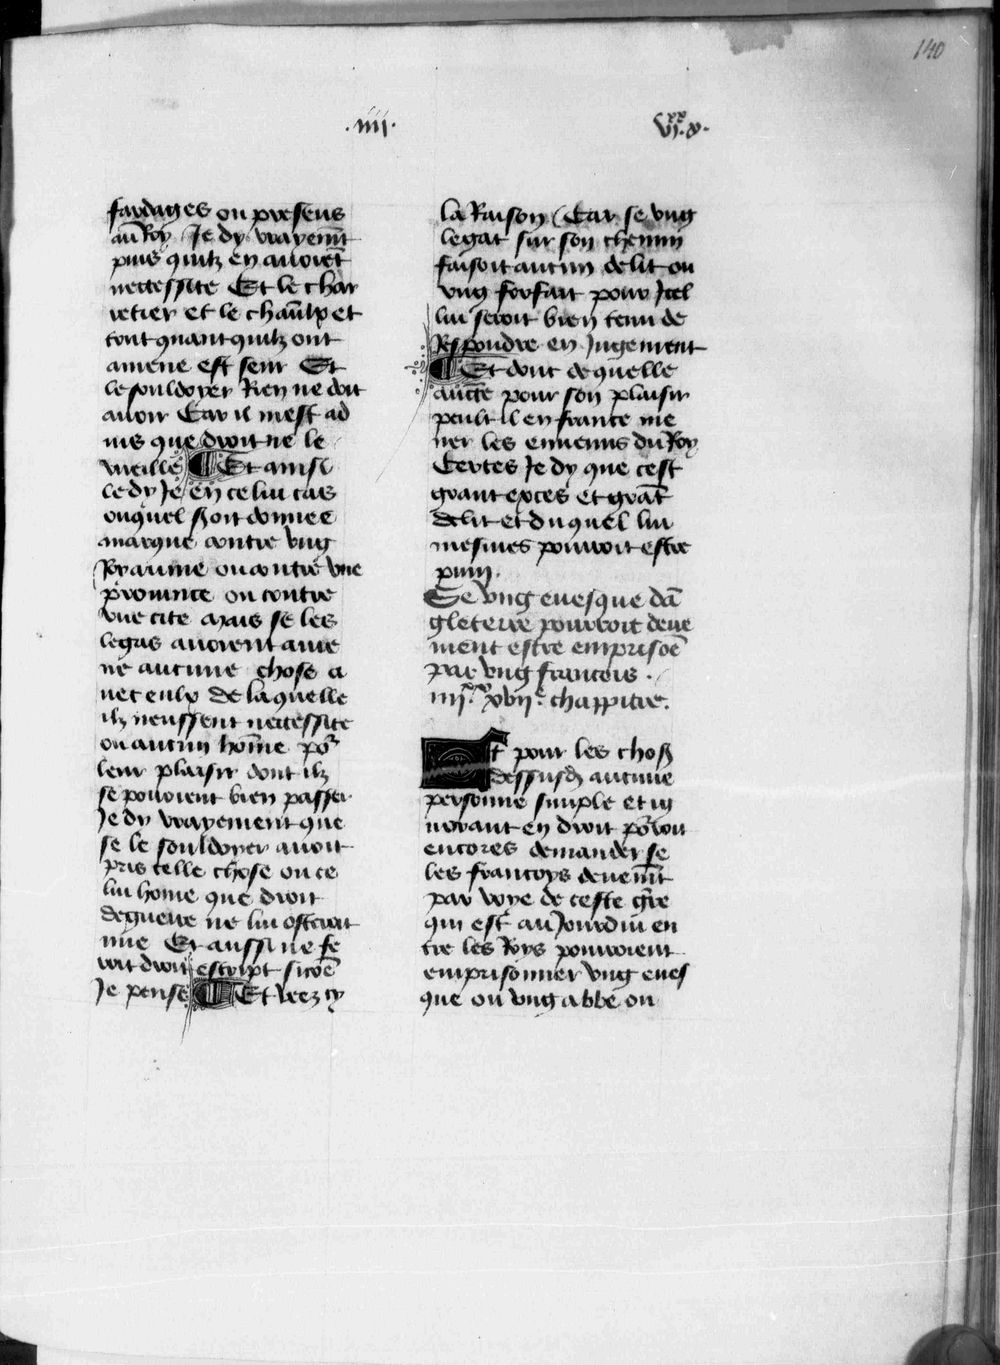 140
.iiii.
vi.xx x.
fardages ou presens
au Roy Je dy vrayemt
puis quilz en auoiet
necessite Et le char
retier et le chaulx et
tout quant quilz ont
amene est seur Et
le souldoyer Rien ne doit
auoir Car il mest ad
uis que droit ne le
vueille ¶ Et ainsi
le dy Je en celui cas
ouquel soit donnee
marque contre vng
Royaume ou contre vne
prouince ou contre
vne cite Mais se les
legas auoient ame
ne aucune chose a
uec eulx de laquelle
ilz neussent necessite
ou aucun home por
leur plaisir dont ilz
se pouoient bien passer
Je dy vrayement que
se le souldoyer auoit
pris celle chose ou ce
lui home que droit
deguerre ne lui osteroit
mie Et aussi ne fe
roit droit escript sicoe
Je pense ¶ Et veez cy
la Raison Car se vng
legat sur son chemin
faisoit aucun delit ou
vng forfait pour Jcel
lui seroit bien tenu de
Respondre en Jugement
¶ Et dont de quelle
aucte pour son plaisir
peult il en france me
ner les ennemis du Roy
Certes Je dy que cest
grant exces et grat
delit et duquel lui
mesmes pourroit estre
puny.
Se vng euesque da
gleterre pourroit deue
ment estre emprisoe
par vng francois.
iiii.xx xvii.e chappitre.
Et pour les chos
dessusd aucune
personne simple et ig
norant en droit porroit
encores demander se
les francoys deuemt
par voye de ceste gre
qui est au Jourdui en
tre les Roys pourroient
emprisonner vng eues
que ou vng abbe ou